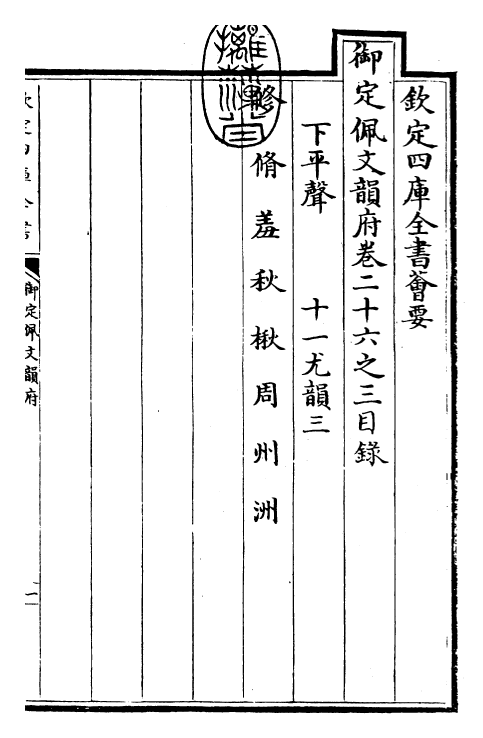 欽定四庫全書薈要
御定佩文韻府卷二十六之三目錄
下平聲 十一尤韻三
修 脩 羞 秋 楸 周 州 洲
欽定四庫全書
御定佩文韻府
一